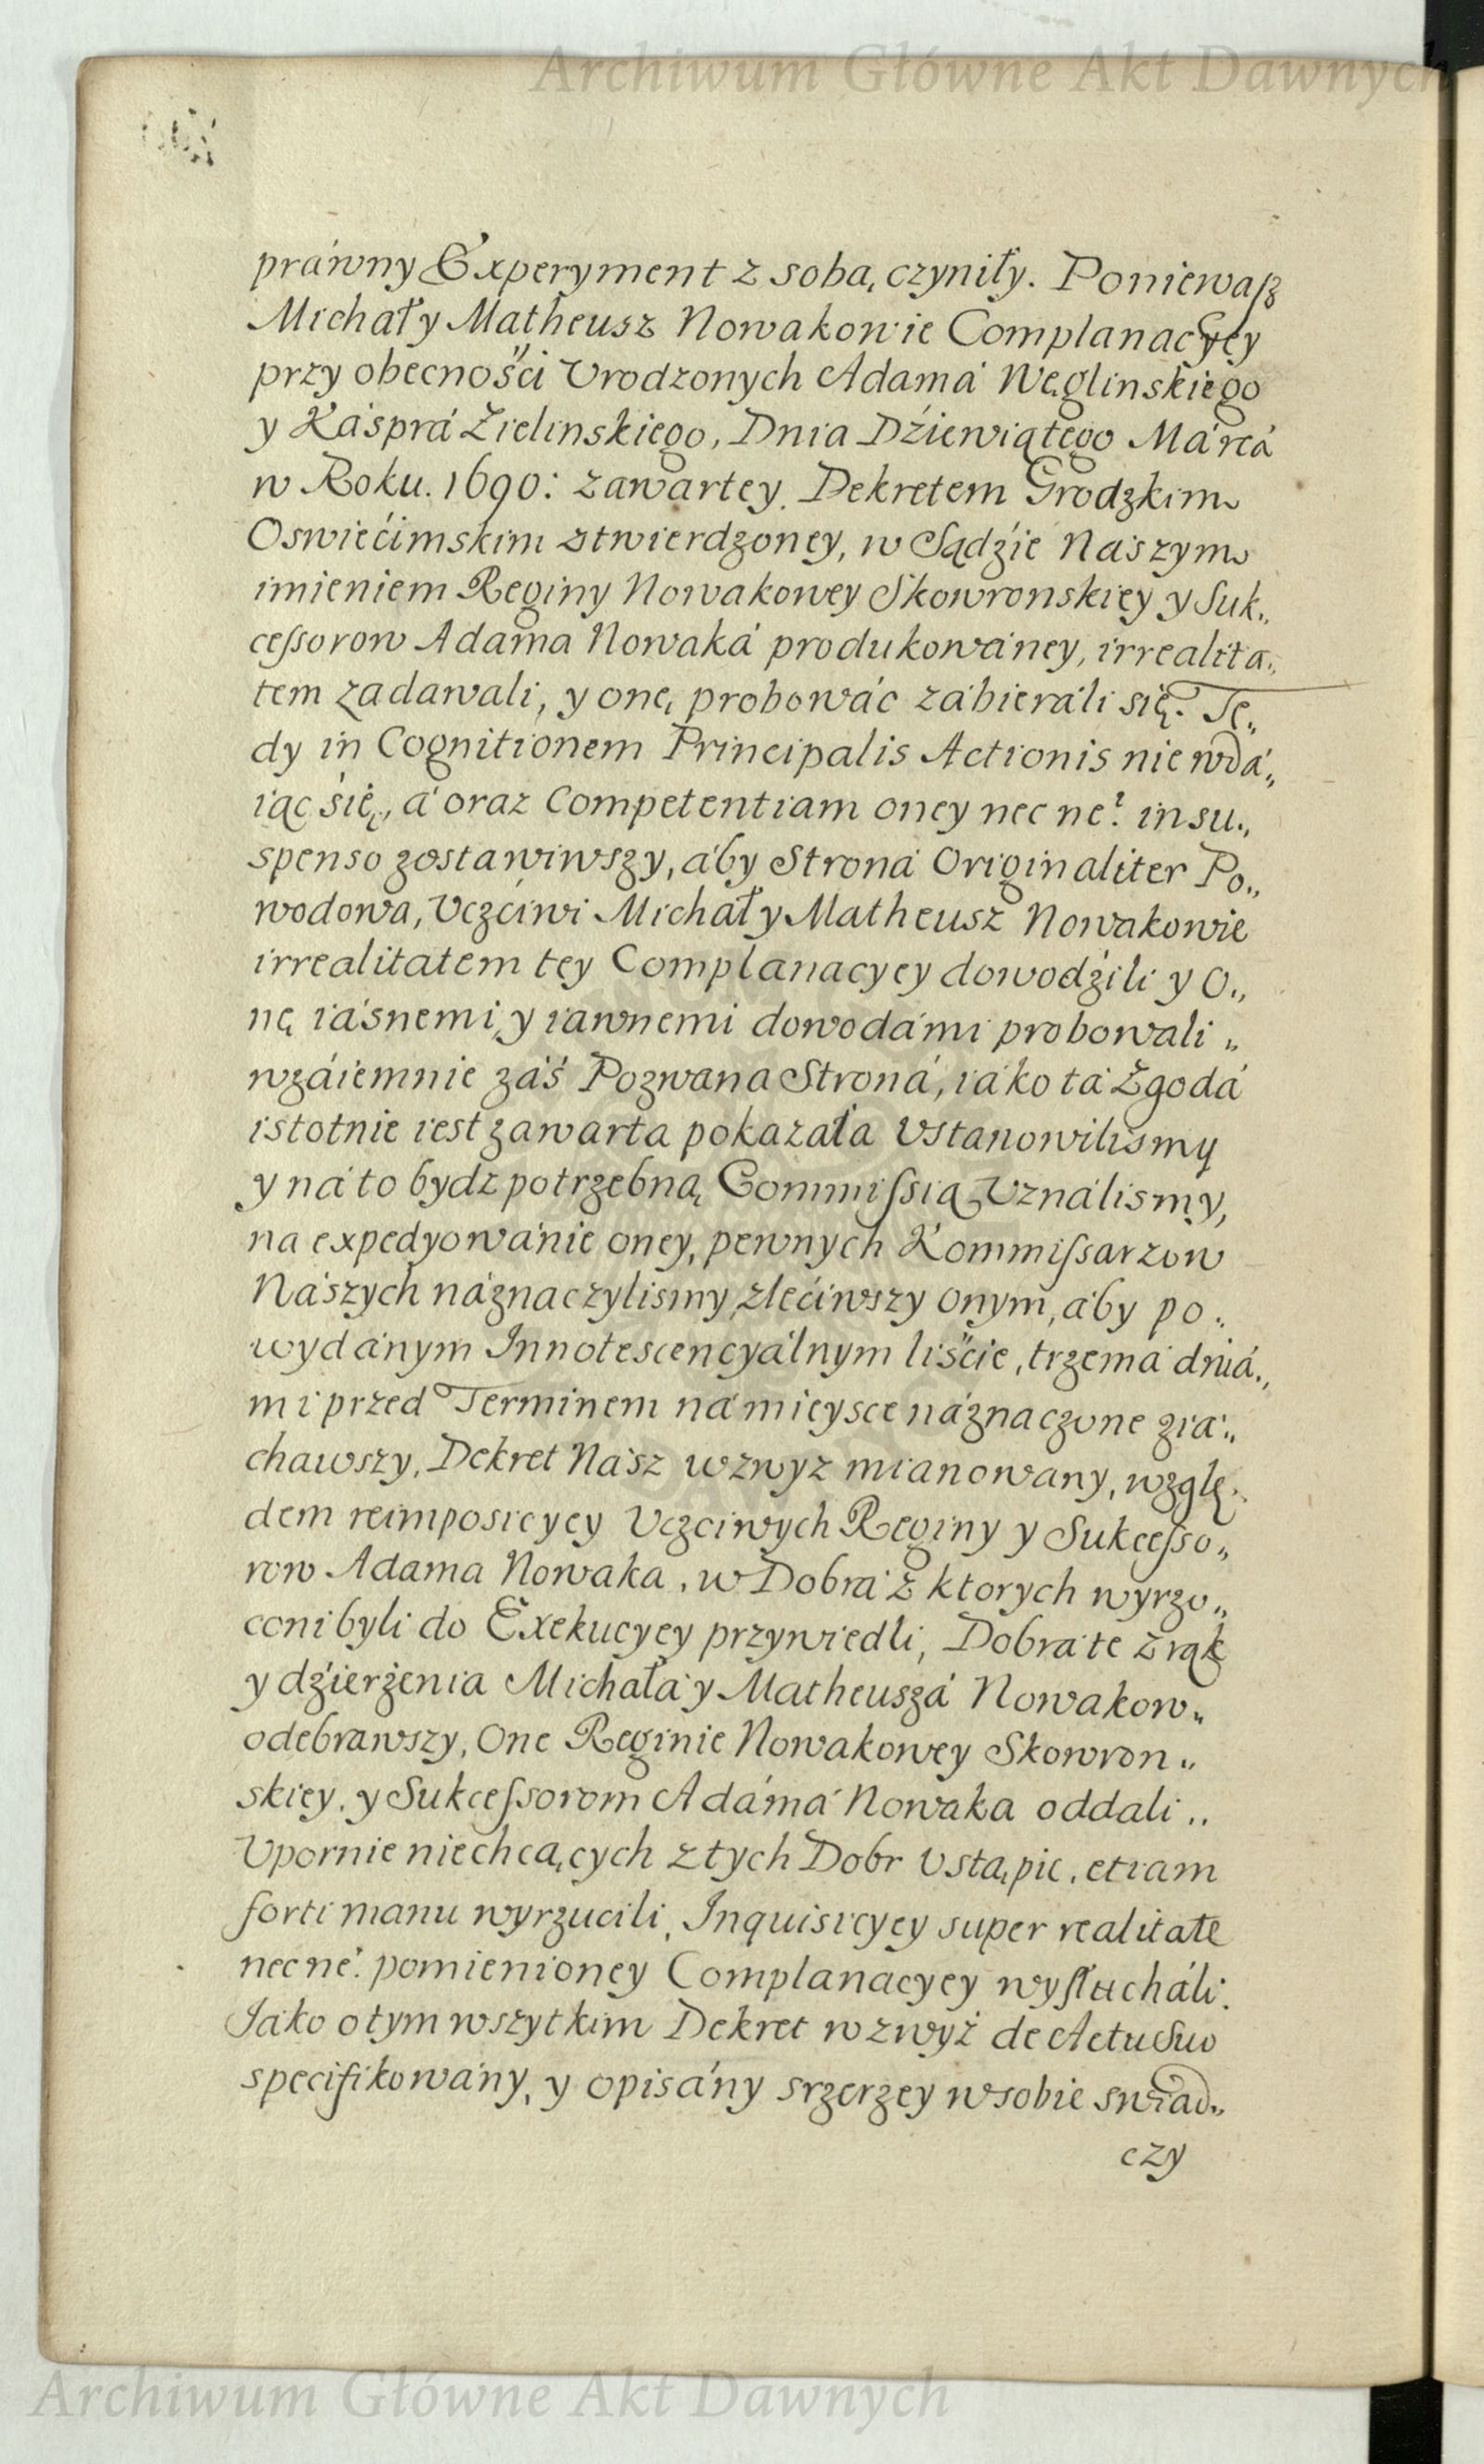 Archiwum Główne Akt Dawnych
práwny Experyment z sobą czyniły. Poniewaſz
Michał y Matheusz Nowakowie Complanacyey
przy obecności Vrodzonych Adamá Węglinskiego
y Káspra Zielinskiego, Dnia Dźiewiątego Márcá
w Roku. 1690: zawartey. Dekretem Grodzkim
Oswiećimskim ztwierdzoney, w Sądźie Nászym
imieniem Reginy Nowakowey Skowronskiey y Suk„
ceſsorow Adama Nowaká produkowáney, irrealita„
tem zadawali, y onę probowáć zábieráli się. Te„
dy in Cognitionem Principalis Actionis nie wdá„
iąc śię, á oraz Competentiam oney nec ne? in su„
spenso zostawiwszy, áby Stroná Originaliter Po„
wodowa, Vczćiwi Michał y Matheusz Nowakowie
irrealitatem tey Complanacyey dowodźili y O„
nę iásnemi, y iawnemi dowodámi probowali „
wzáiemnie záś Pozwana Stroná, iáko tá Zgodá
istotnie iest zawarta pokazała Vstanowilismy
y ná to bydz potrzebną Commiſsią Vználismy,
na expedyowánie oney, pewnych Kommiſsarzow
Nászych náznaczylismy zlećiwszy onym, áby po„
wydánym Innotescencyálnym liście, trzemá dniá„
mi przed Terminem ná mieysce náznaczone ziá„
chawszy, Dekret Nász wzwyz mianowany, wzglę„
dem reimposicyey Vczciwych Reginy y Sukceſso„
row Adama Nowaka, w Dobrá z ktorych wyrzu„
ceni byli do Exekucyey przywiedli, Dobra te z rąk
y dźierżenia Michała y Matheuszá Nowakow„
odebrawszy, One Reginie Nowakowey Skowron„
skiey, y Sukceſsorom Adámá Nowaka oddali„
Vpornie niechcących z tych Dobr Vstąpic, etiam
forti manu wyrzucili, Inquisicyey super realitate
nec ne. pomienioney Complanacyey wyſłucháli.
Jako o tym wszytkim Dekret wzwyż de Actu Suo
specifikowány, y opisány srzerzey w sobie swiad„
czy
Archiwum Główne Akt Dawnych